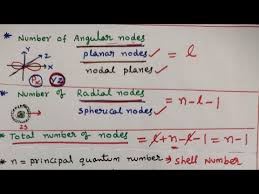 * Number of Angular nodes
planar nodes = l
nodal planes
Y
Z
X
Px YZ
* Number of Radial nodes
spherical nodes = n-l-1
2S
* Total number of nodes = l+n-l-1 = n-1
* n = principal quantum number → Shell Number